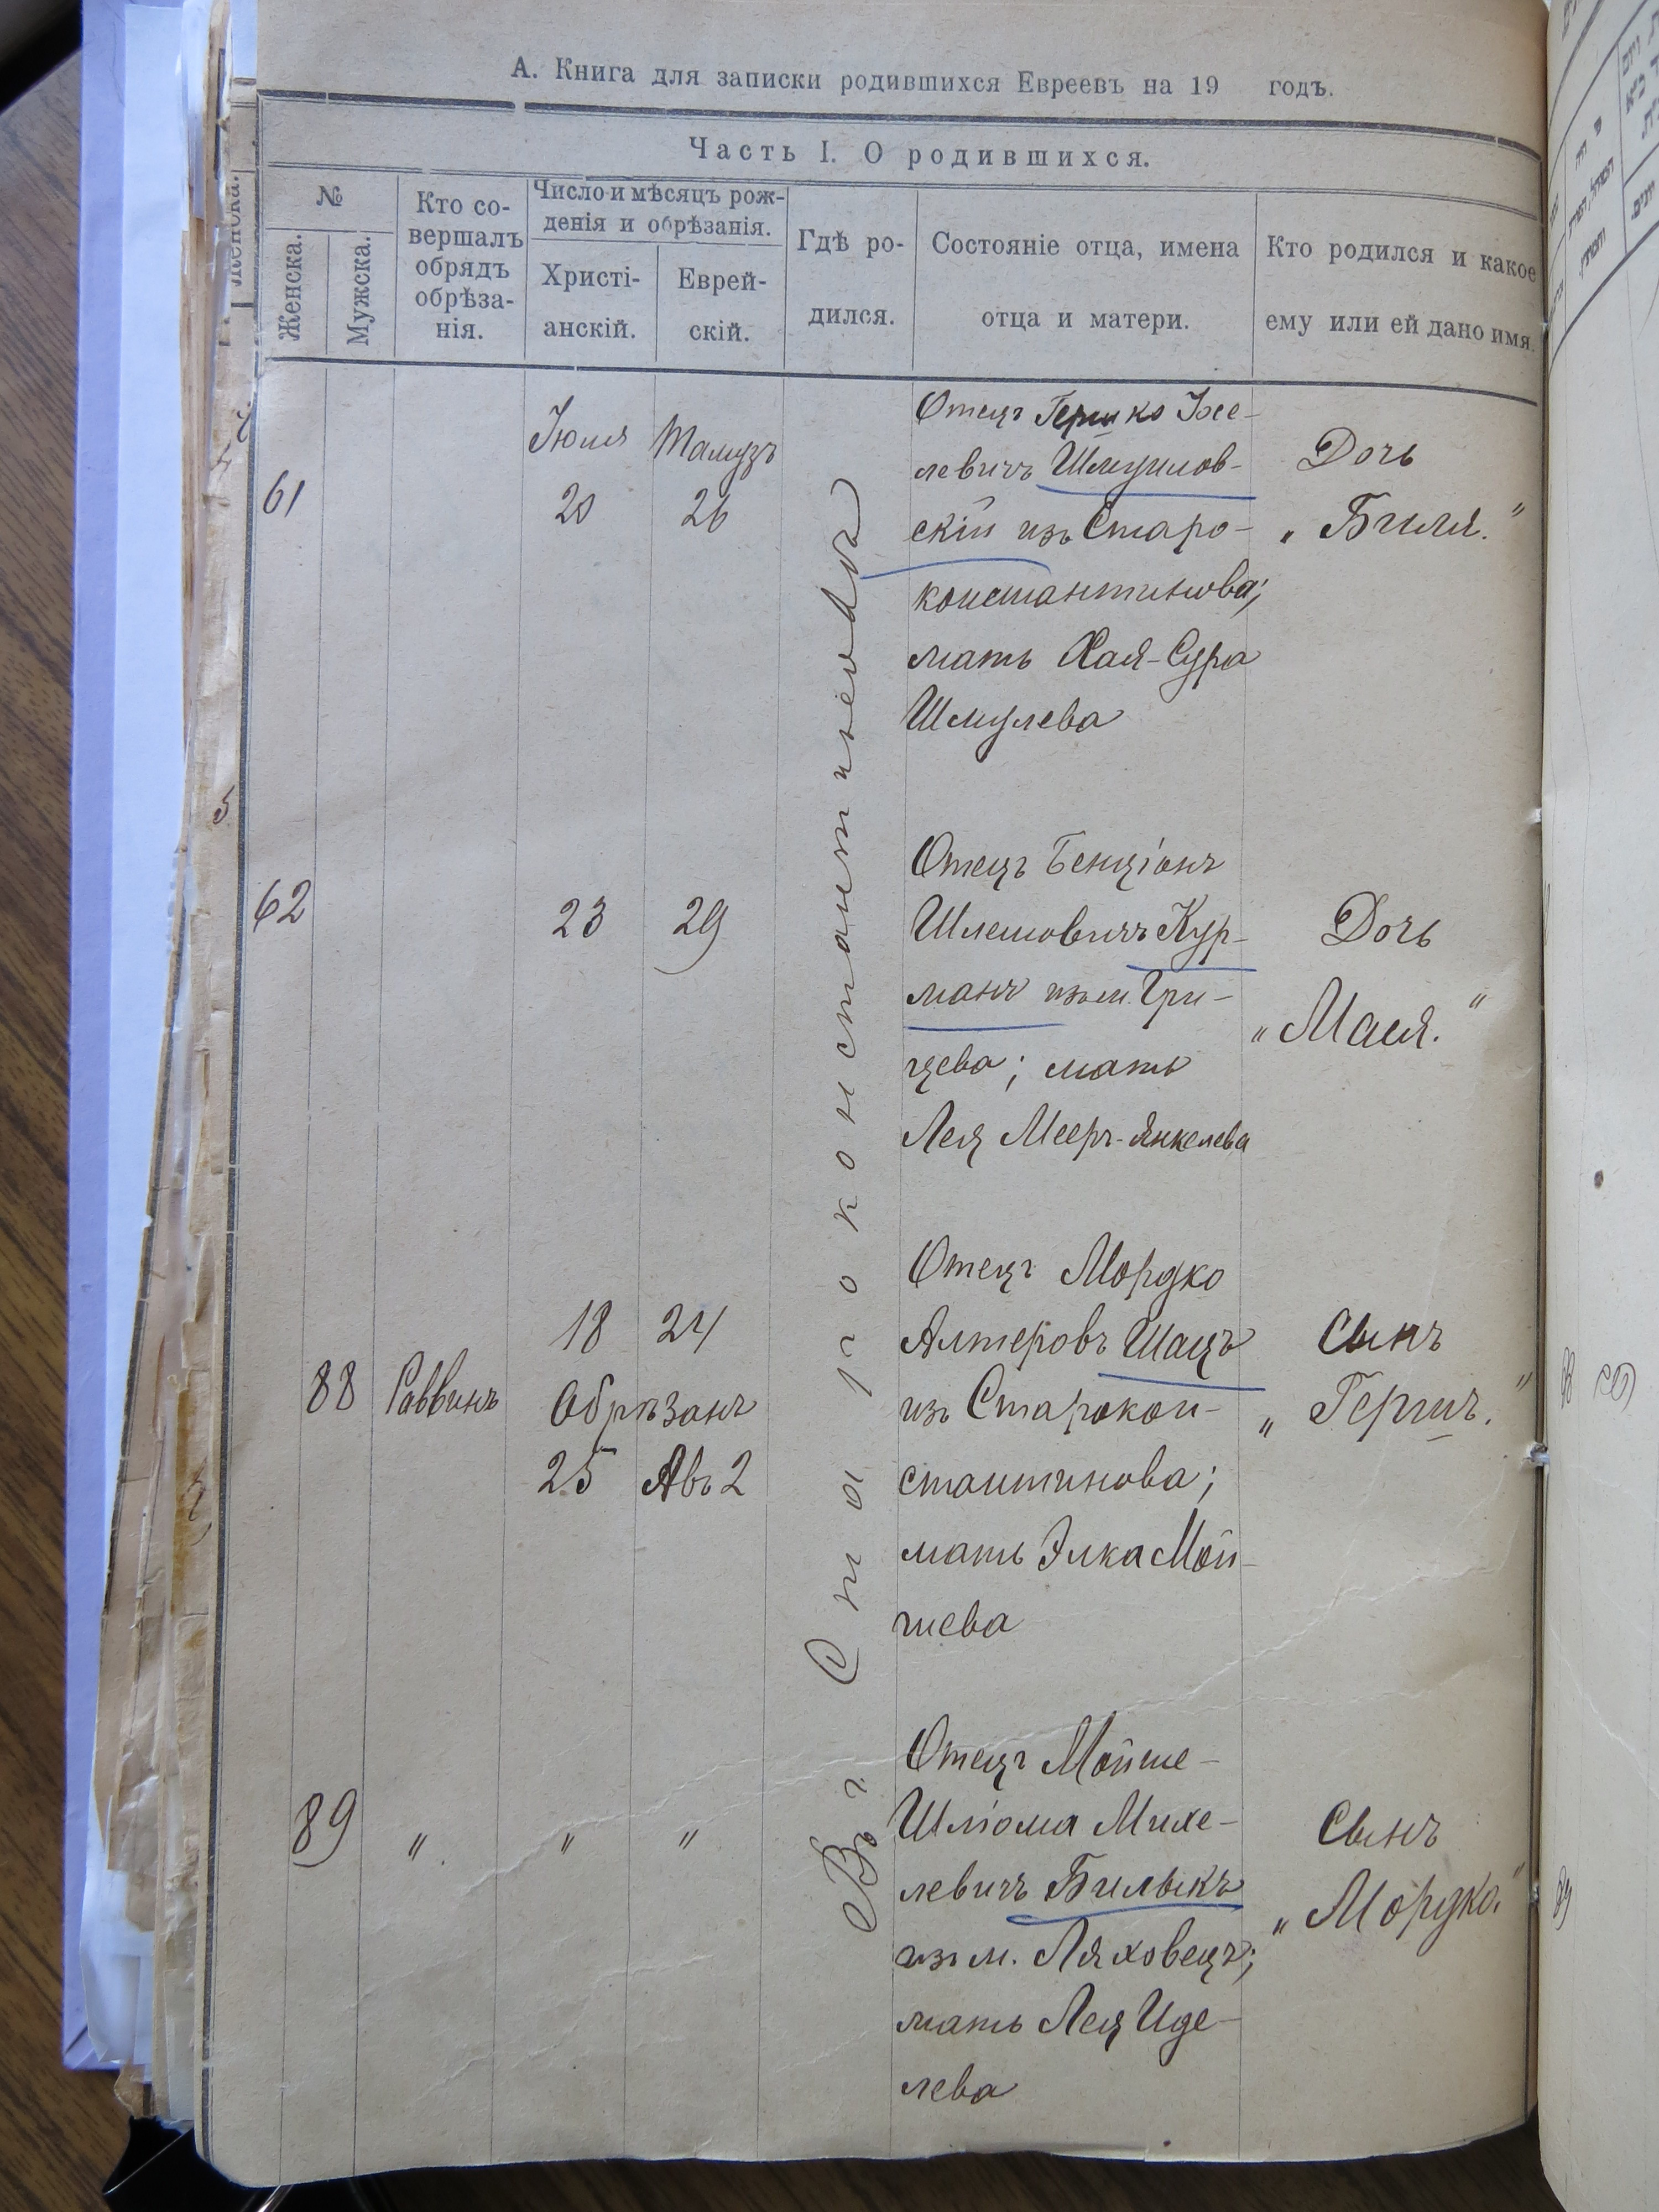 А. Книга для записки родившихся Евреевъ на 19 годъ.
Часть I. О родившихся.
№
Женска.
Мужска.
Кто со-
вершалъ
обрядъ
обрѣза-
нія.
Число и мѣсяцъ рож-
денія и обрѣзанія.
Христі-
анскій.
Еврей-
скій.
Гдѣ ро-
дился.
Состояніе отца, имена
отца и матери.
Кто родился и какое
ему или ей дано имя.
Въ г. Староконстантиновѣ
61
Іюля
20
Тамузъ
26
Отецъ Гершко Іосе-
левичъ Шмуилов-
скій изъ Старо-
константинова;
мать Хая-Сура
Шмулева
Дочь
„Биля."
62
23
29
Отецъ Бенціонъ
Шлемовичъ Кур-
манъ изъ м. Гри-
цева; мать
Лея Мееръ-Янкелева
Дочь
„Маля."
88
Раввинъ
18
24
Обрѣзанъ
25
Авъ 2
Отецъ Мордко
Алтеровъ Шацъ
изъ Старокон-
стантинова;
мать Элка Мой-
шева
Сынъ
„Гершъ."
89
"
"
"
Отецъ Мойше-
Шліома Михе-
левичъ Билыкъ
изъ м. Ляховецъ;
мать Лея Иде-
лева
Сынъ
„Мордко."